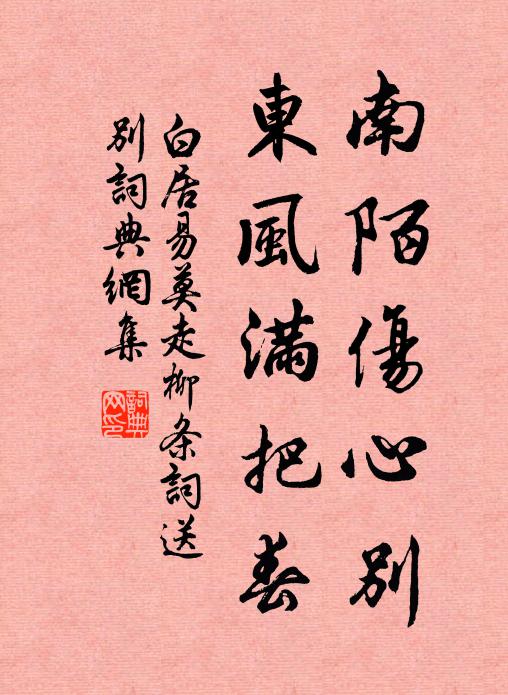 南陌傷心別
東風滿把春
白居易莫走柳条詞送
別詞典網集
詞典
网印